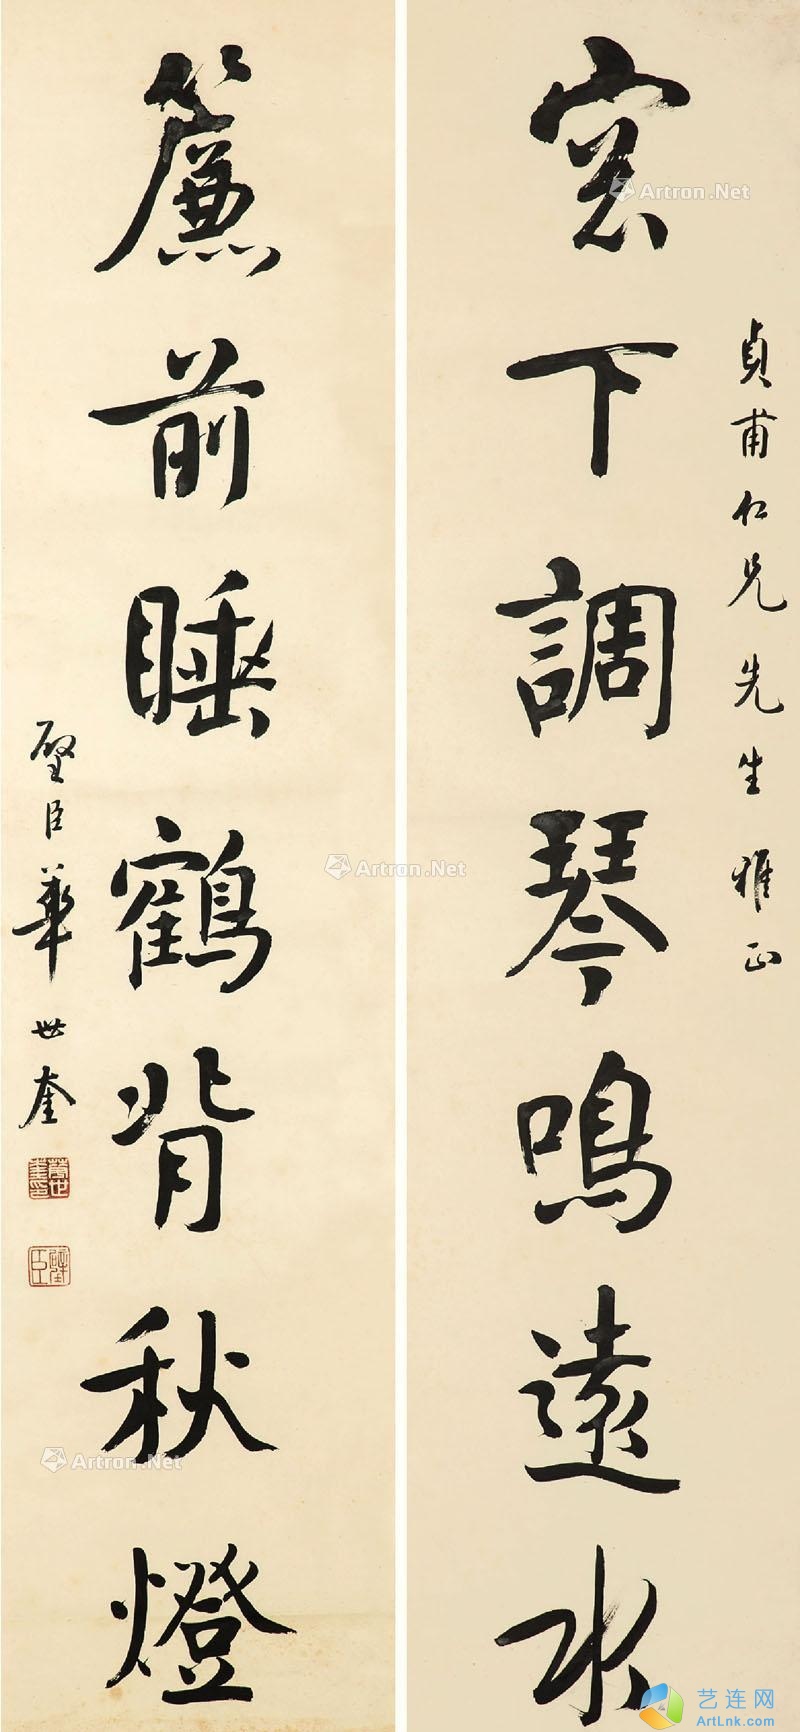 貞甫仁兄先生雅正
窓下調琴鳴遠水
簾前睡鶴背秋燈
壁臣華世奎
華世奎印
璧臣
Artron.Net
Artron.Net
Artron.Net
艺连网
ArtLnk.com